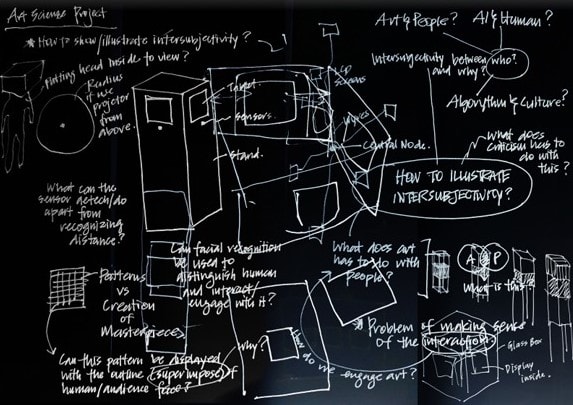 Art Science Project
* How to show/illustrate intersubjectivity?
Putting head inside to view?
Radius
if use
projector
from
above.
Target.
Sensors.
stand.
LCD
Screens
Wires
Central Node.
Art & People?
AI & Human?
Intersurgectivity between who?
and why?
Algorythm & Culture?
What does
criticism has to
do with
this?
HOW TO ILLUSTRATE
INTERSUBJECTIVITY?
What can the
sensor detech/do
apart from
recognizing
distance?
Can facial recognition
be used to
distinguish human
and interact/
engage with it?
What does art
has to do with
people?
A P
When is this?
Patterns
vs
Creation
of
Masterpiece
* Problem of making sense
of the interaction
Glass Box
Display
inside.
Why?
How
do we engage art?
Can this pattern be displayed
with the outline (superimpose) of
human/audience face?